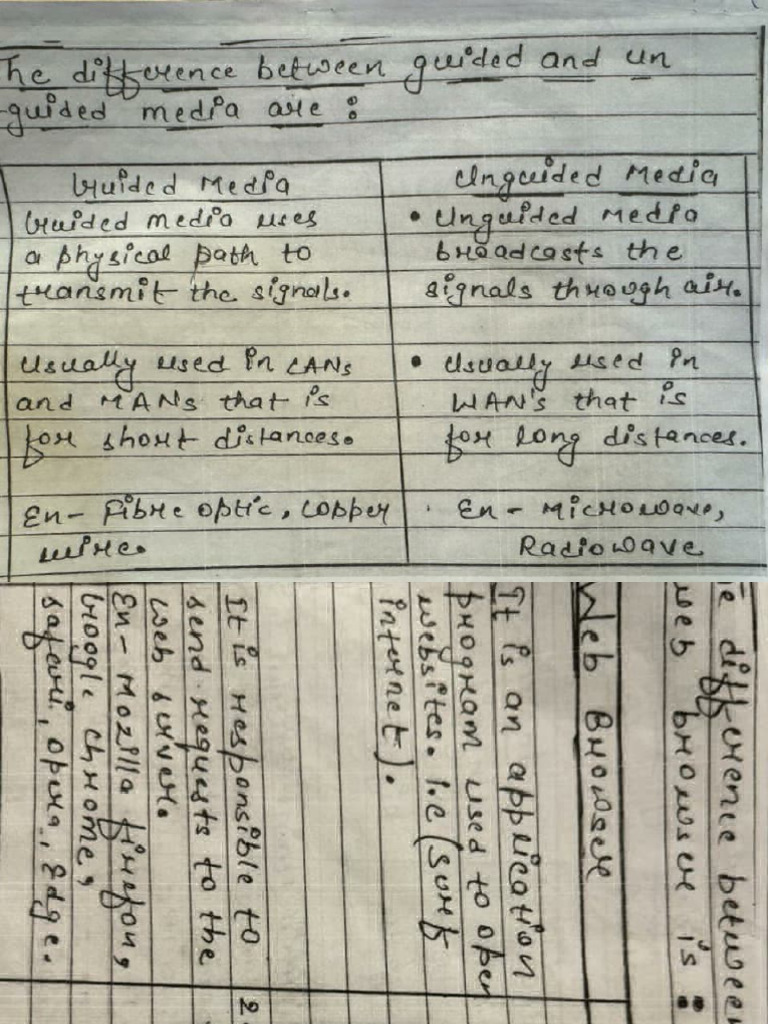 The difference between guided and un
guided media are :
Guided Media
Guided media uses
a physical path to
transmit the signals.
Usually used in LANs
and MANs that is
for short distances.
Ex- Fibre optic, copper
wire.
Unguided Media
• Unguided Media
broadcasts the
signals through air.
• Usually used in
WAN's that is
for long distances.
· Ex - Microwave,
Radiowave
difference between
web browser is :
Web Browser
It is an application
program used to open
websites. I.e (Surf
internet).
It is responsible to
send requests to the
web server.
Ex- Mozilla firefox,
Google chrome,
safari, opera, Edge.
2.